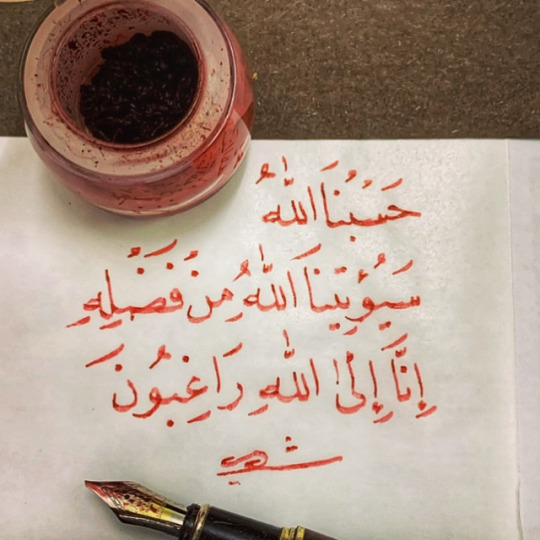 حَسْبُنَا اللّٰهُ
سَيُؤْتِينَا اللّٰهُ مِنْ فَضْلِهِ
إِنَّا إِلَى اللّٰهِ رَاغِبُونَ